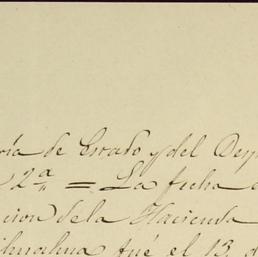 ría de Estado y del Desp
2ª = La fecha
cion de la Hacienda
ihuahua fué el 13 d